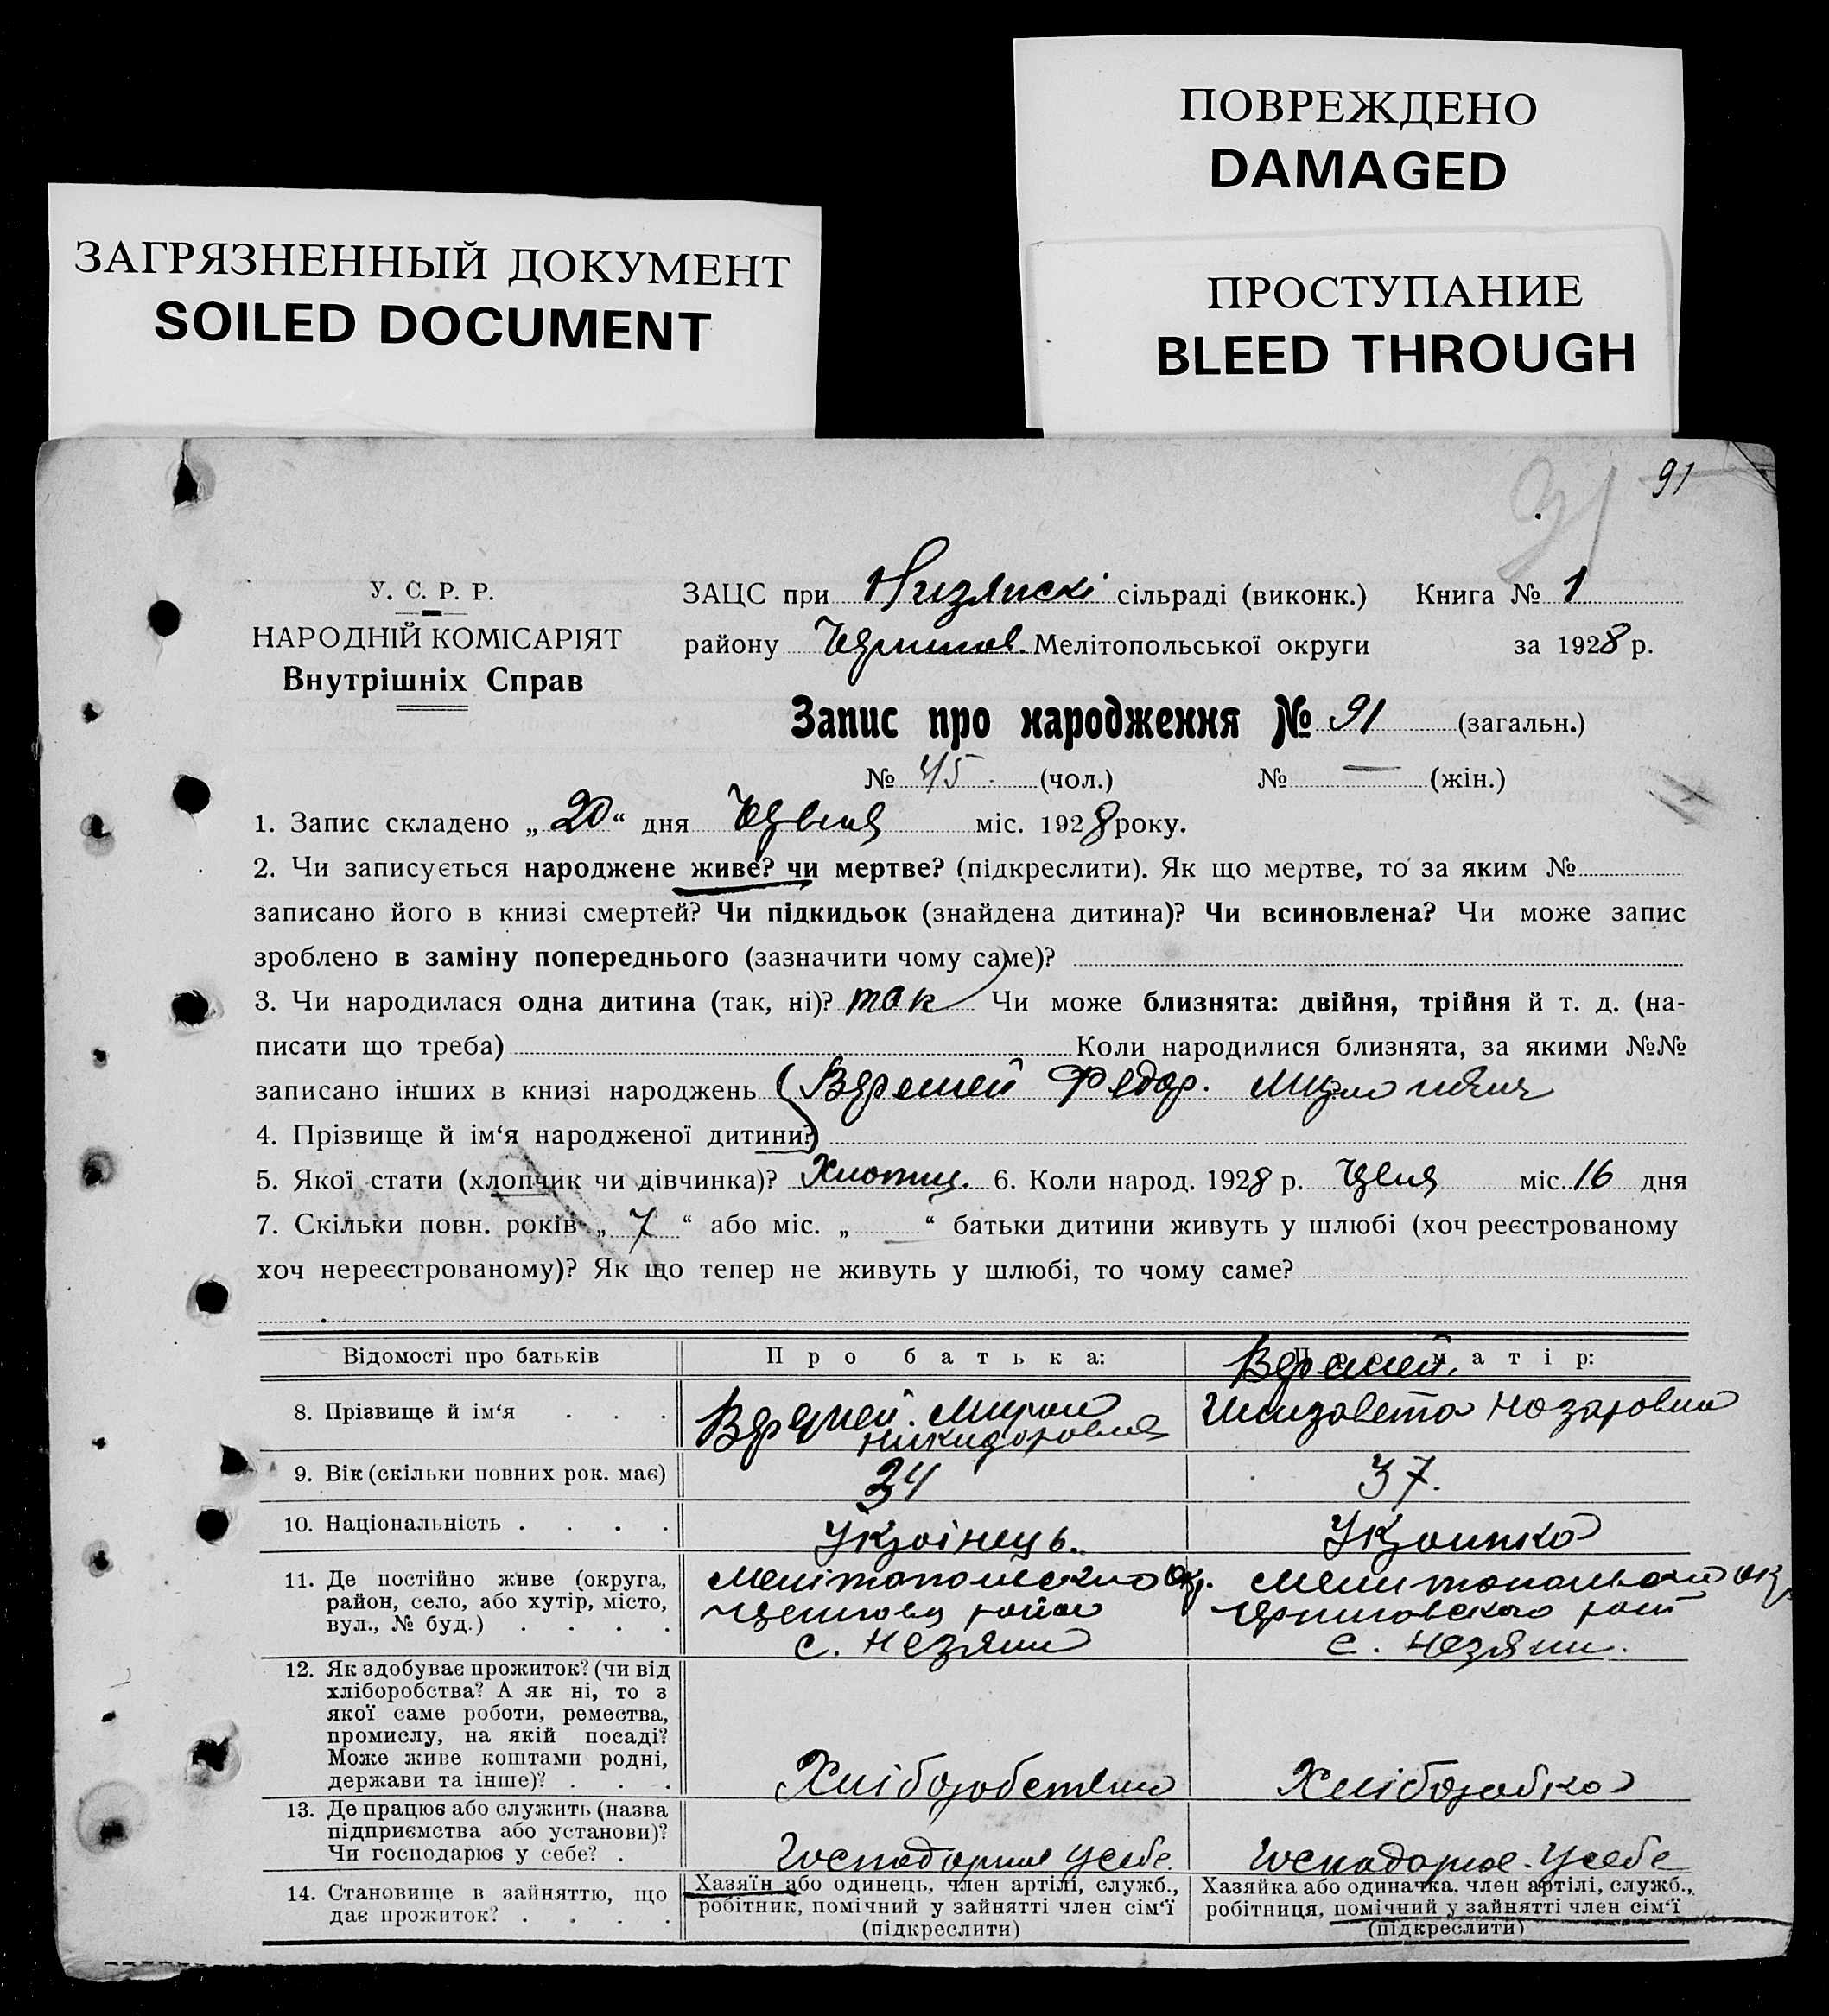 ПОВРЕЖДЕНО
DAMAGED
ЗАГРЯЗНЕННЫЙ ДОКУМЕНТ
SOILED DOCUMENT
ПРОСТУПАНИЕ
BLEED THROUGH
91
91
У. С. Р. Р.
НАРОДНІЙ КОМІСАРІЯТ
Внутрішніх Справ
ЗАЦС при сільраді (виконк.) Книга № 1
району Мелітопольської округи за 1928 р.
Запис про народження № 91 (загальн.)
№ 45 (чол.) № — (жін.)
1. Запис складено „20“ дня міс. 1928 року.
2. Чи записується народжене живе? чи мертве? (підкреслити). Як що мертве, то за яким №
записано його в книзі смертей? Чи підкидьок (знайдена дитина)? Чи всиновлена? Чи може запис
зроблено в заміну попереднього (зазначити чому саме)?
3. Чи народилася одна дитина (так, ні)? так Чи може близнята: двійня, трійня й т. д. (на-
писати що треба) Коли народилися близнята, за якими №№
записано інших в книзі народжень Веремей Федор.
4. Прізвище й ім‘я народженої дитини?
5. Якої стати (хлопчик чи дівчинка)? Хлопец. 6. Коли народ. 1928 р. міс. 16 дня
7. Скільки повн. років „7“ або міс. „ “ батьки дитини живуть у шлюбі (хоч реєстрованому
хоч нереєстрованому)? Як що тепер не живуть у шлюбі, то чому саме?
Відомості про батьків Про батька: Про матір:
Веремей.
8. Прізвище й ім‘я . . . Веремей. Мирон Никидорович Елизавета Назаровна
9. Вік (скільки повних рок. має) 34 37.
10. Національність . . . . Українець. Українка
11. Де постійно живе (округа,
район, село, або хутір, місто,
вул., № буд.) . . . .
с. с.
12. Як здобуває прожиток? (чи від
хліборобства? А як ні, то з
якої саме роботи, ремества,
промислу, на якій посаді?
Може живе коштами родні,
держави та інше)? . . . Хліборобство Хліборобка
13. Де працює або служить (назва
підприємства або установи)?
Чи господарює у себе? . Господарює у себе Господарює у себе
14. Становище в зайняттю, що
дає прожиток? . . . .
Хазяїн або одинець, член артілі, служб.,
робітник, помічний у зайнятті член сім‘ї
(підкреслити)
Хазяйка або одиначка, член артілі, служб.,
робітниця, помічний у зайнятті член сім‘ї
(підкреслити)